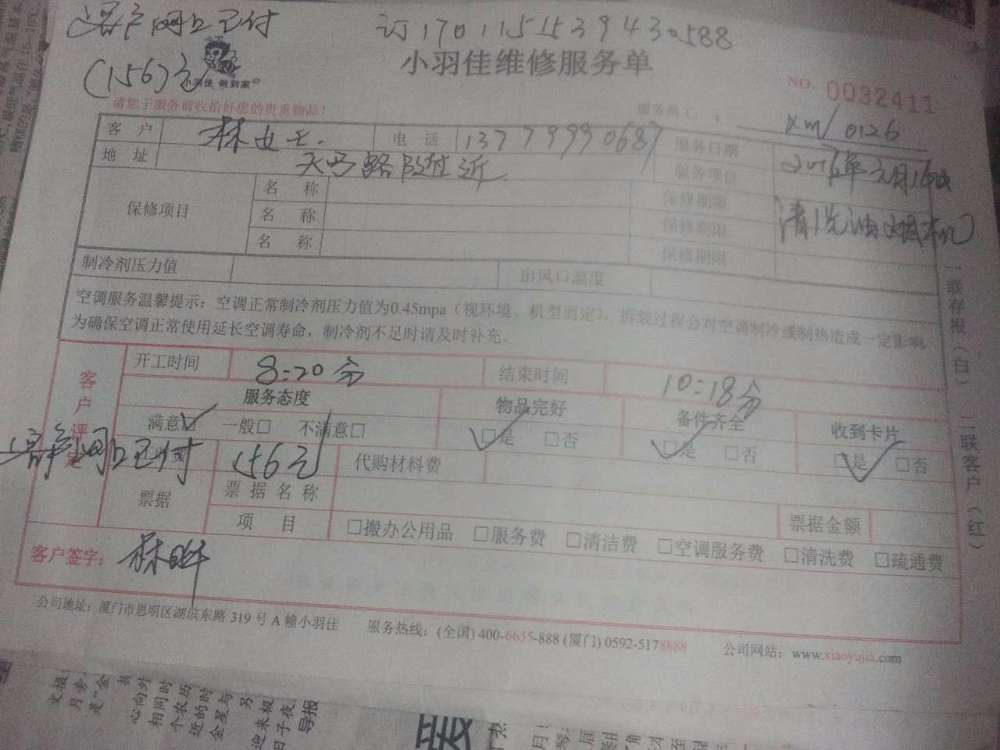 客户网上已付
订1701151539430588
(156)元
小羽佳 做到家
小羽佳维修服务单
NO. 0032411
请您于服务前收拾好您的贵重物品!
服务员工: xm/0126
客户 林女士. 电话 13779990687 服务日期
地址 天马路附近 服务项目 清洗油烟机
保修项目 名称 保修期限
名称 保修期限
名称 保修期限
制冷剂压力值 出风口温度
空调服务温馨提示:空调正常制冷剂压力值为0.45mpa(视环境、机型而定),拆装过程会对空调制冷或制热造成一定影响
为确保空调正常使用延长空调寿命,制冷剂不足时请及时补充。
客户评定
开工时间 8:20分 结束时间 10:18分
服务态度 物品完好 备件齐全 收到卡片
满意☑ 一般□ 不满意□ ☑是 □否 ☑是 □否 ☑是 □否
客户网上已付 156元 代购材料费
票据 票据名称 票据金额
项目 □搬办公用品 □服务费 □清洁费 □空调服务费 □清洗费 □疏通费
客户签字:
公司地址:厦门市思明区湖滨东路 319 号 A 幢小羽佳 服务热线:(全国) 400-6655-888 (厦门) 0592-5178888 公司网站:www.xiaoyujia.com
一联存报(白) 二联客户(红)